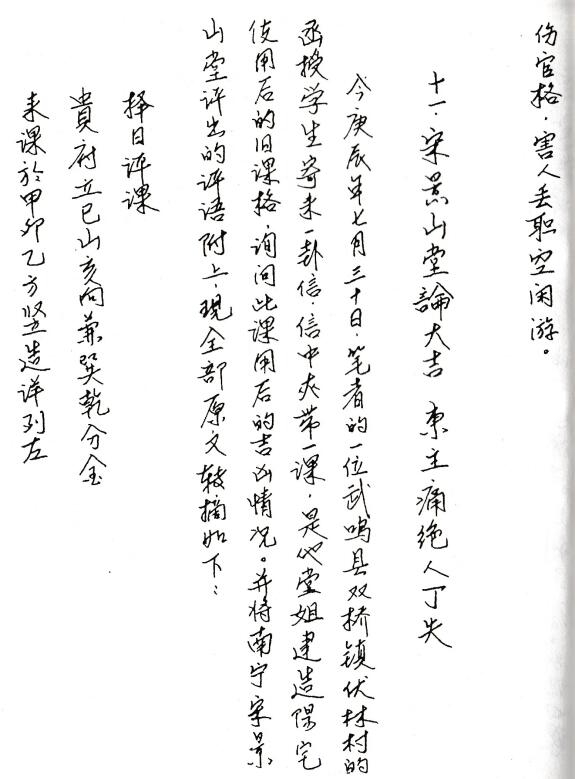 伤官格，害人丢职空闲游。
十一、宋景山堂論大吉 东主痛绝人丁失
今庚辰年七月三十日，笔者的一位武鸣县双桥镇伏林村的
函授学生寄来一卦信，信中夹带一课，是他堂姐建造阳宅
使用后的旧课格，询问此课用后的吉凶情况。并将南宁宋景
山堂评出的评语附上，现全部原文转摘如下：
择日评课
貴府立巳山亥向兼巽乾分金
来课於甲卯乙方竖造详列左